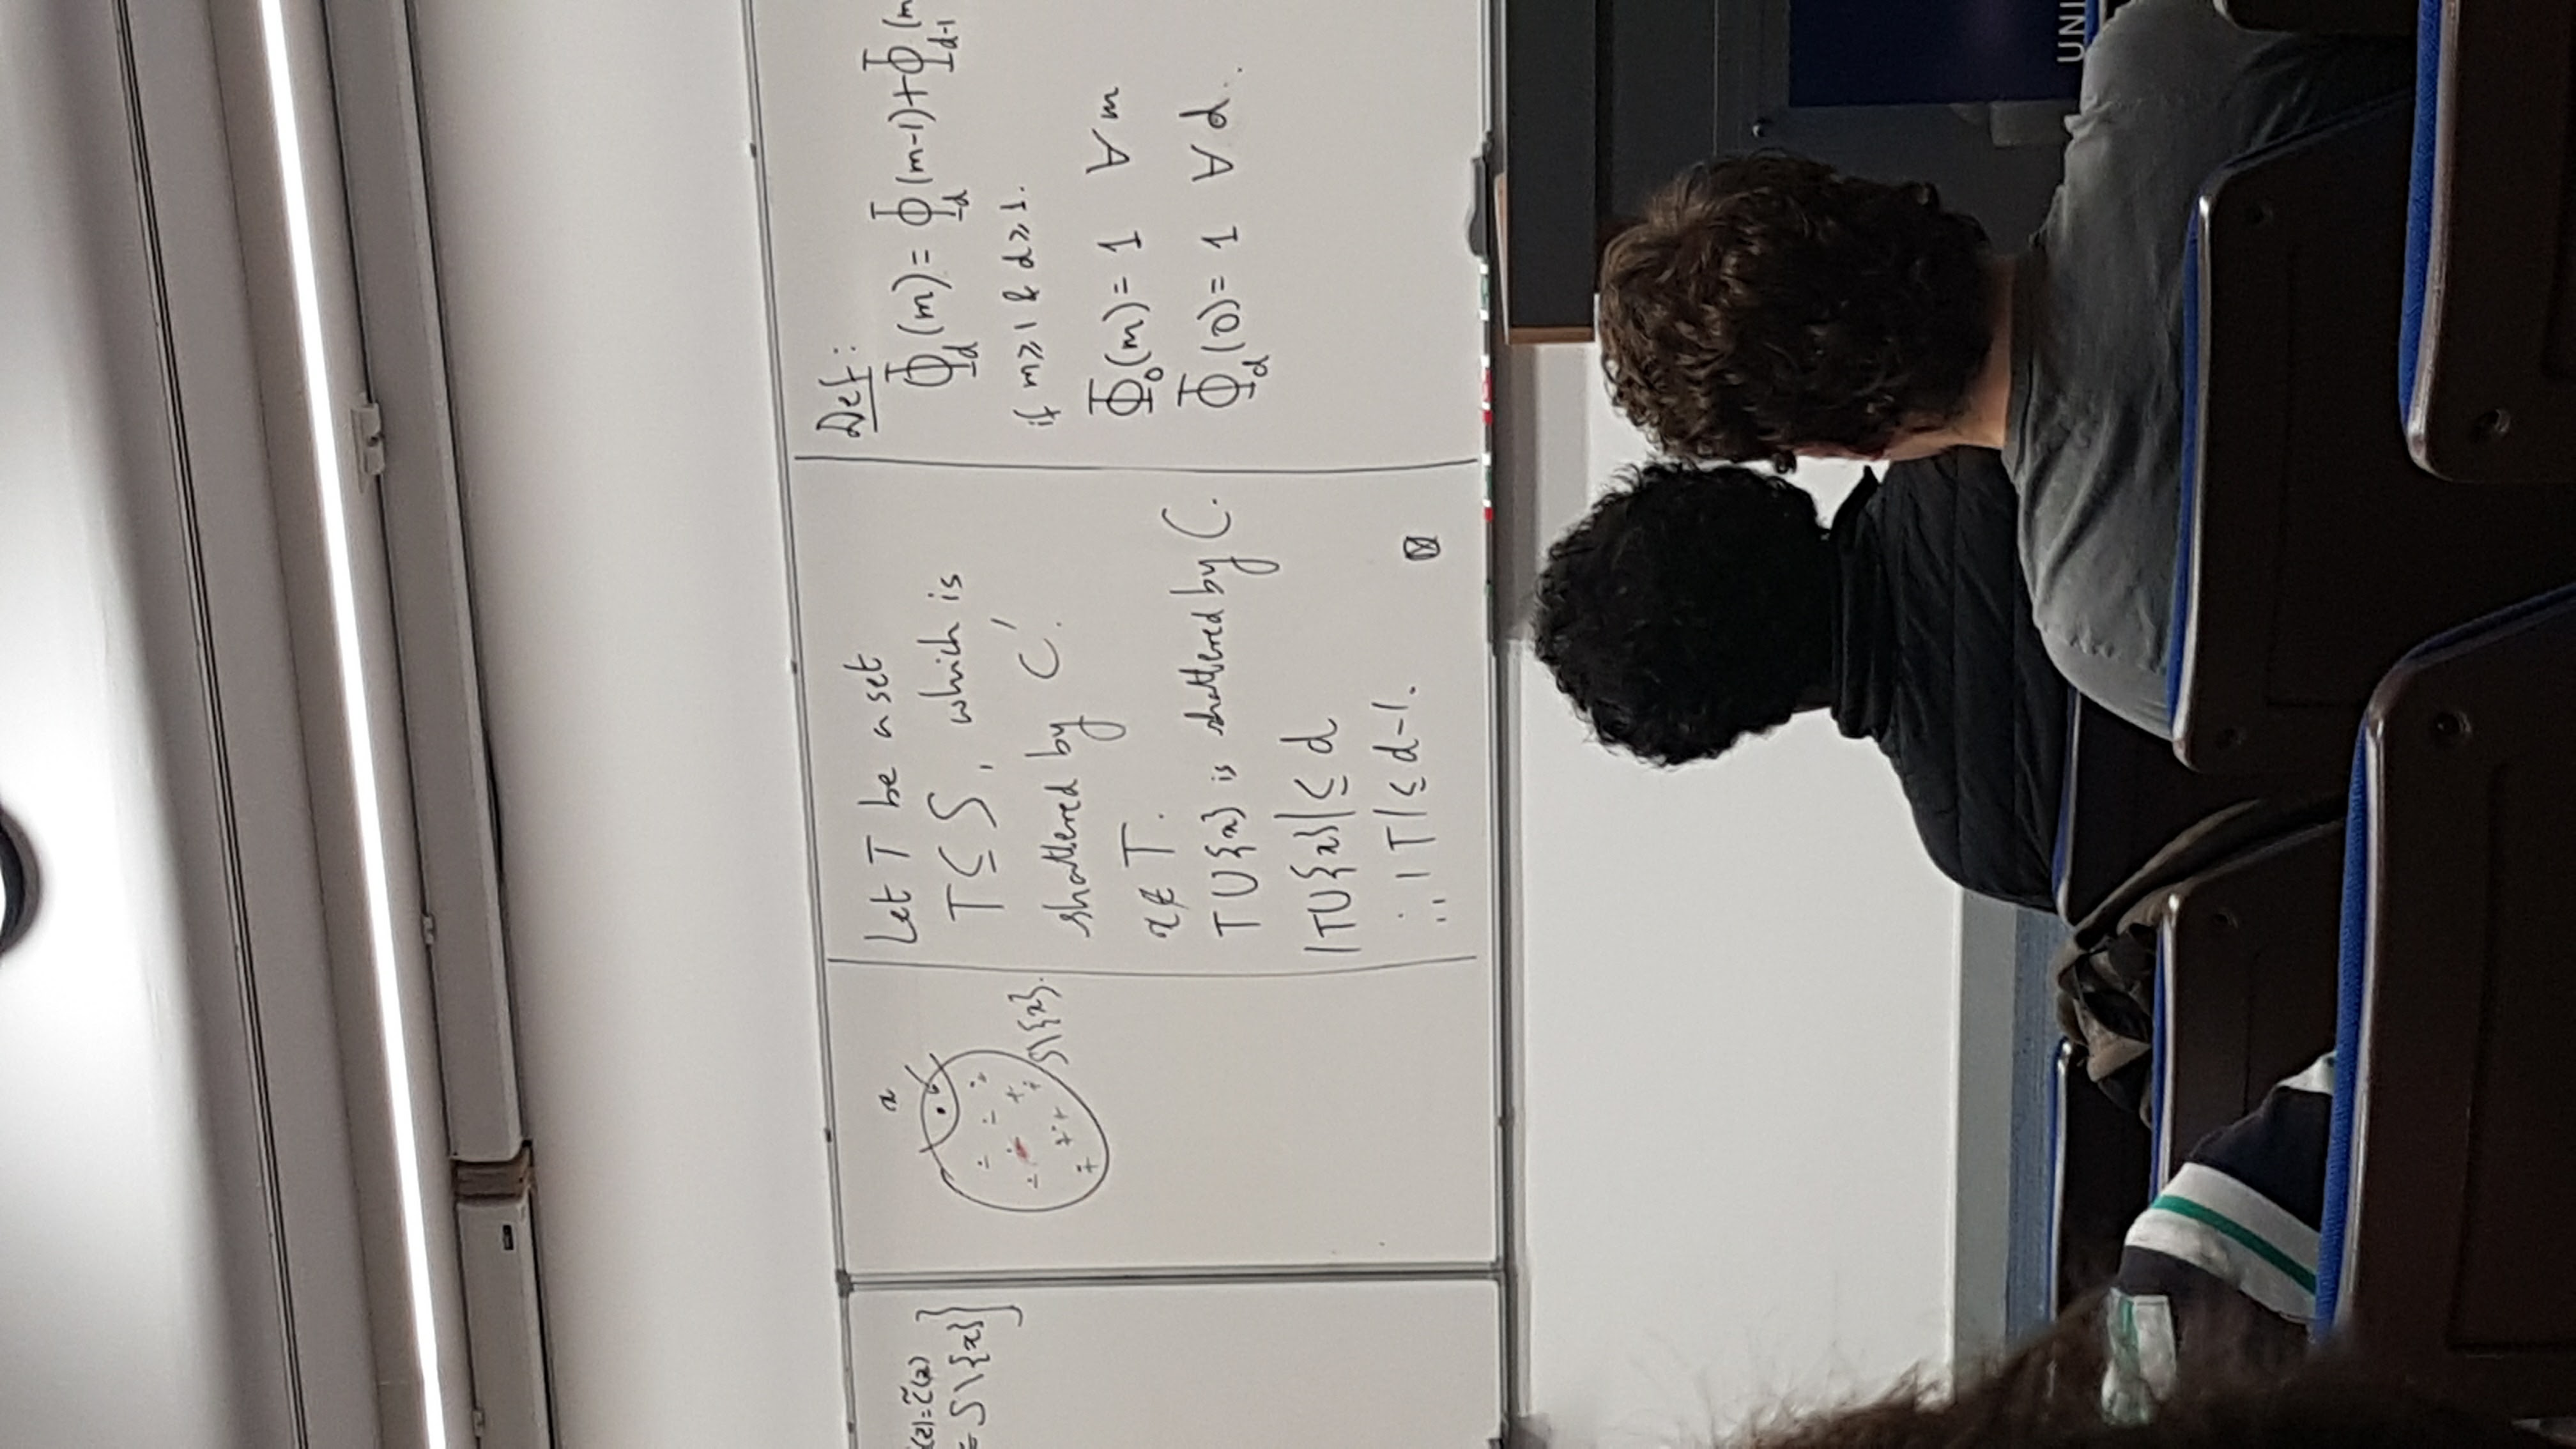 (z)=c̃(z)
= S\{x}]
x
S\{x}.
Let T be a set
T ⊆ S, which is
shattered by C'.
x∉ T.
T∪{x} is shattered by C.
|T∪{x}| ≤ d
∴ |T| ≤ d-1.
Def:
Φ_d(m) = Φ_d(m-1)+Φ_{d-1}(m
if m≥1 & d≥1.
Φ_0(m) = 1 ∀m
Φ_d(0) = 1 ∀d.
UNI